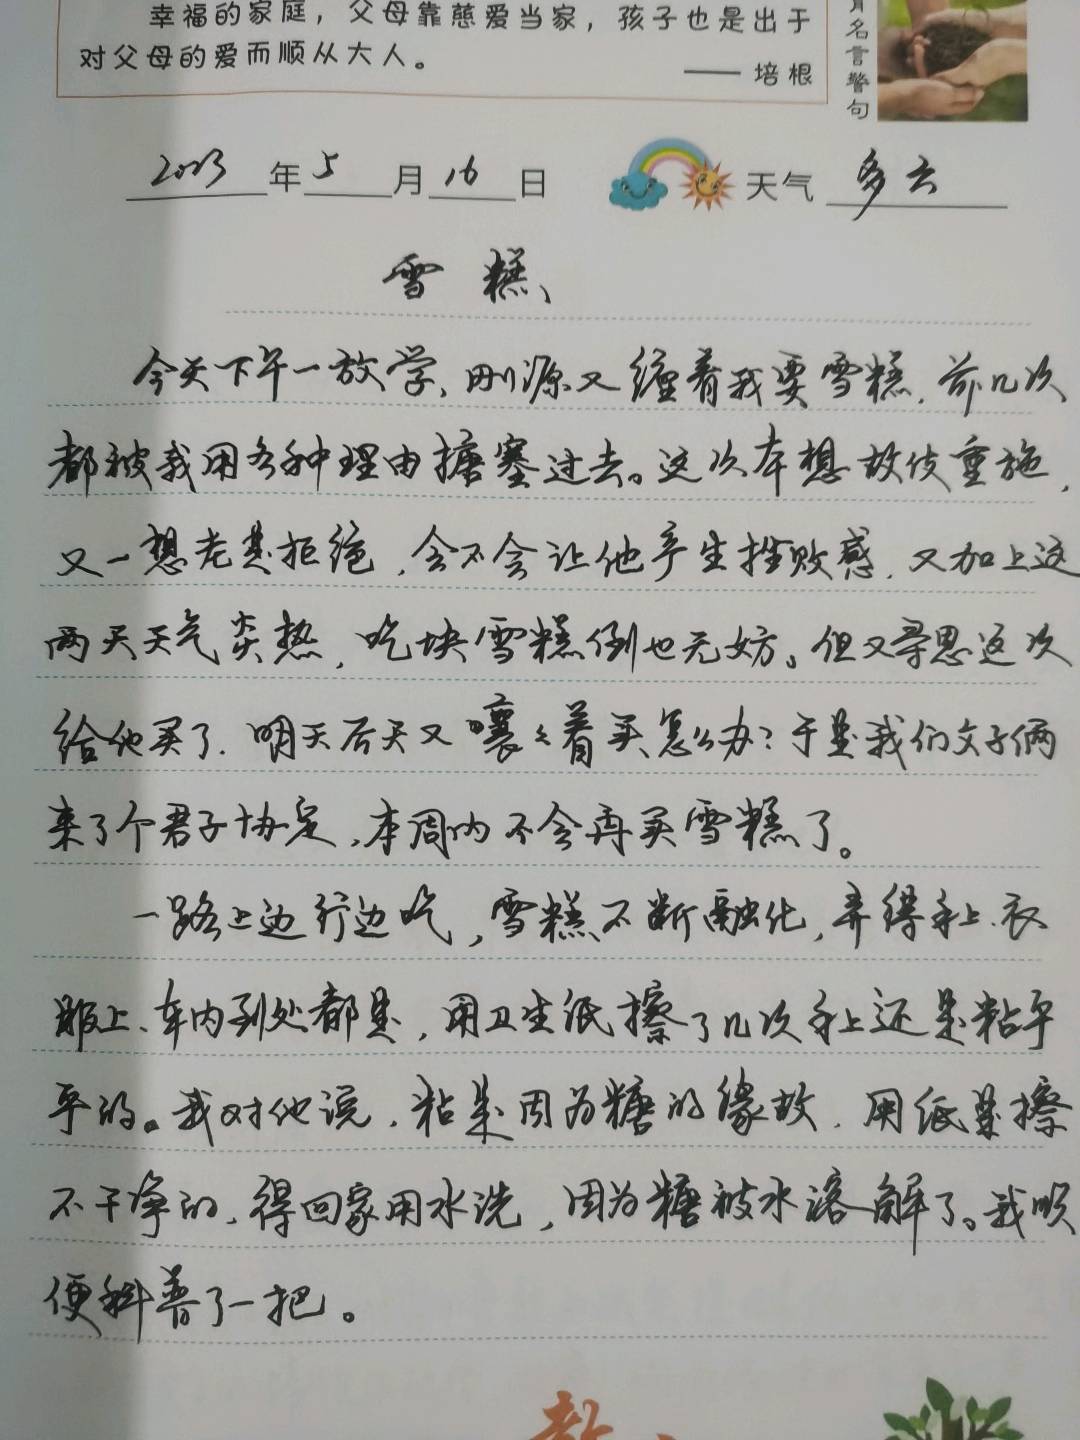 幸福的家庭，父母靠慈爱当家，孩子也是出于
对父母的爱而顺从大人。
—— 培根
名言警句
2023年5月16日 天气 多云
雪糕
今天下午一放学，刚源又缠着我要雪糕，前几次
都被我用各种理由搪塞过去。这次本想故伎重施，
又一想老是拒绝，会不会让他产生挫败感，又加上这
两天天气炎热，吃块雪糕倒也无妨。但又寻思这次
给他买了，明天后天又嚷嚷着买怎么办？于是我们父子俩
来了个君子协定，本周内不会再买雪糕了。
一路上边行边吃，雪糕不断融化，弄得手上、衣
服上、车内到处都是，用卫生纸擦了几次手上还是粘乎
乎的。我对他说，粘是因为糖的缘故，用纸是擦
不干净的，得回家用水洗，因为糖被水溶解了。我顺
便科普了一把。